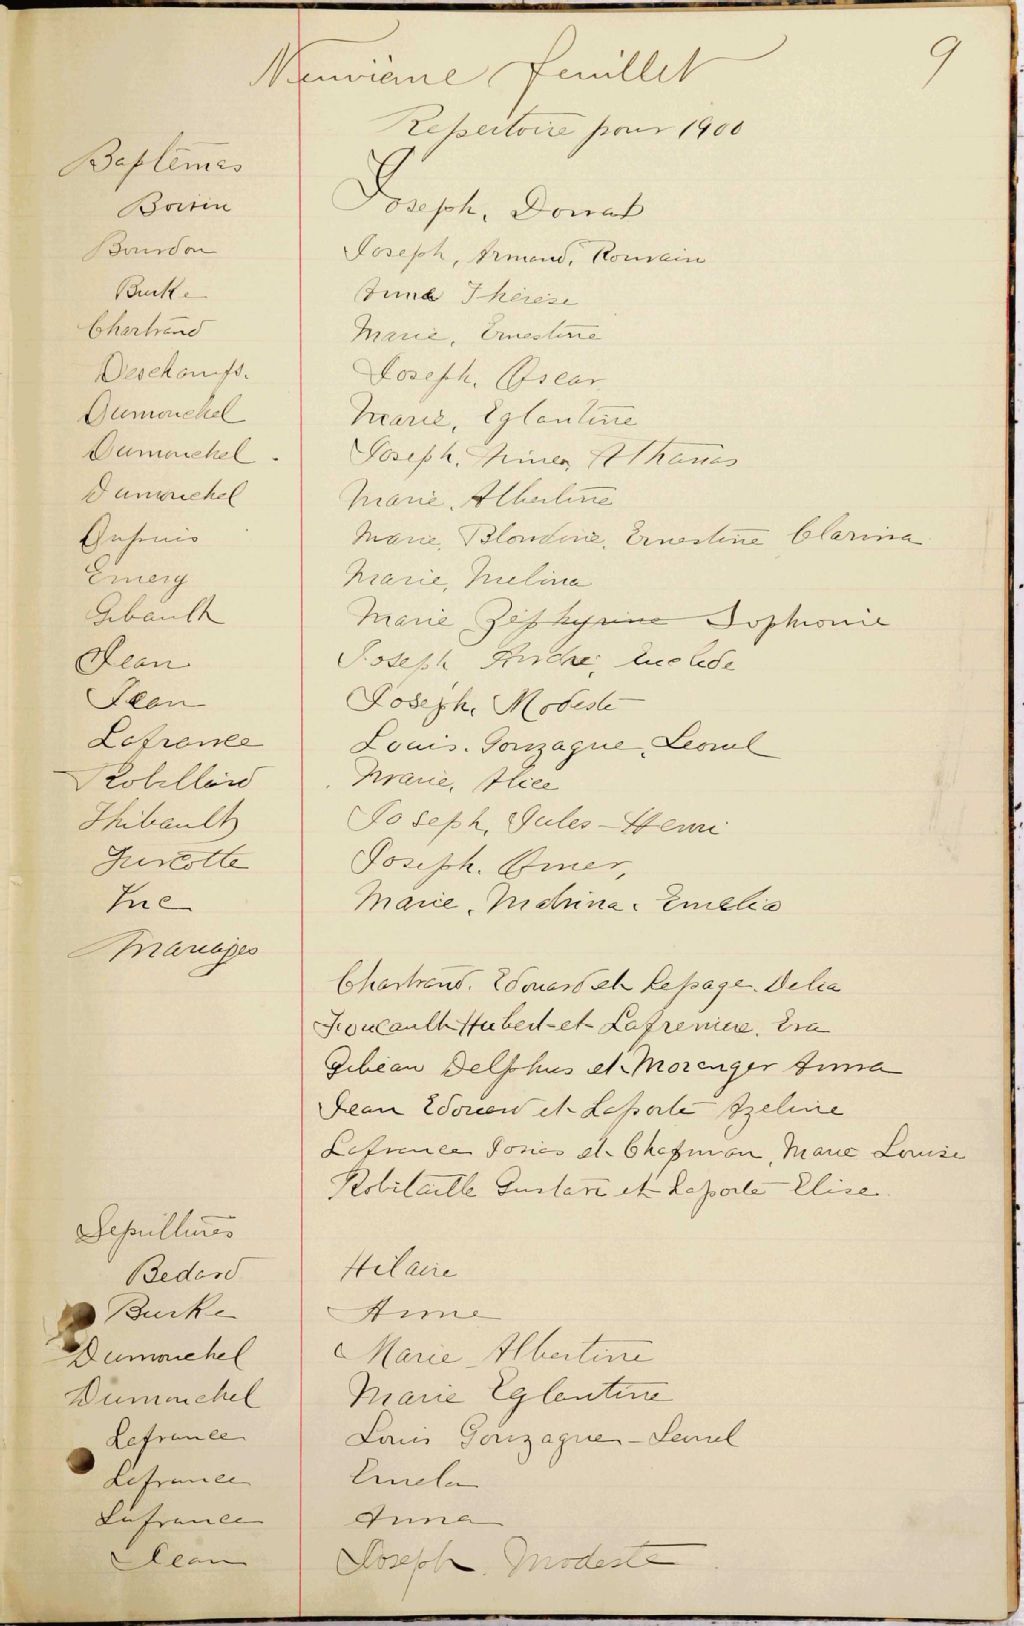 9
Neuvième feuillet
Repertoire pour 1900
Baptêmes
Boivin Joseph, Donat
Bourdon Joseph, Armand, Romain
Burke Anna Thérèse
Chartrand Marie, Ernestine
Deschamps. Joseph, Oscar
Dumouchel Marie, Eglantine
Dumouchel. Joseph, Aimé, Athanas
Dumouchel Marie, Albertine
Dupuis Marie, Blondine, Ernestine Clarina
Emery Marie, Melina
Gibault Marie Zéphyrine Sophronie
Jean Joseph André, Euclide
Jean Joseph, Modeste
Lafrance Louis. Gonzague, Leonel
Robillard Marie, Alice
Thibault Joseph, Jules-Henri
Turcotte Joseph. Omer,
Yve Marie, Malvina. Emelia
Mariages
Chartrand. Edouard et Lepage. Delia
Foucault Hubert-et-Lafreniere. Eva
Gibeau Delphus et Morenger Anna
Jean Edouard et Laporte Azeline
Lafrance Josias et Chapman, Marie Louise
Robitaille Gustave et Laporte Elise.
Sepultures
Bedard Hilaire
Burke Anne
Dumouchel Marie Albertine
Dumouchel Marie Eglantine
Lafrance Louis Gonzague-Leonel
Lafrance Emela
Lafrance Anna
Jean Joseph. Modeste